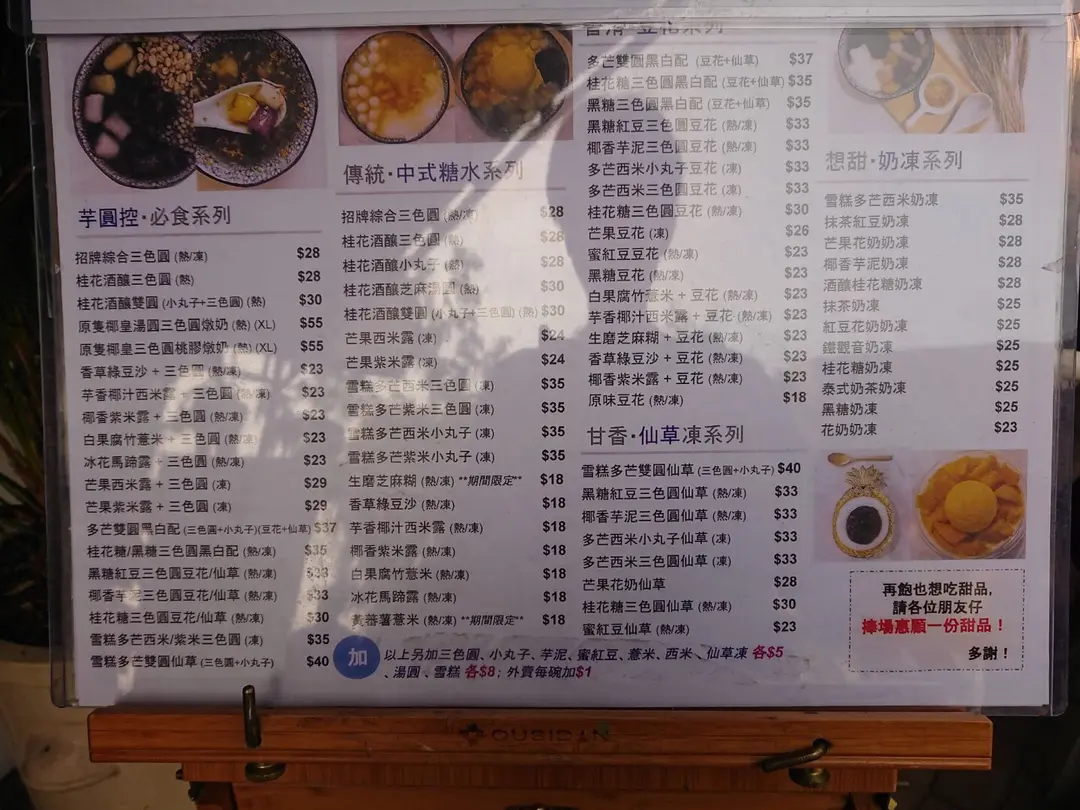 芋圓控·必食系列
招牌綜合三色圓 (熱/凍) $28
桂花酒釀三色圓 (熱) $28
桂花酒釀雙圓 (小丸子+三色圓) (熱) $30
原隻椰皇湯圓三色圓燉奶 (熱) (XL) $55
原隻椰皇三色圓桃膠燉奶 (熱) (XL) $55
香草綠豆沙 + 三色圓 (熱/凍) $23
芋香椰汁西米露 + 三色圓 (熱/凍) $23
椰香紫米露 + 三色圓 (熱/凍) $23
白果腐竹薏米 + 三色圓 (熱/凍) $23
冰花馬蹄露 + 三色圓 (熱/凍) $23
芒果西米露 + 三色圓 (凍) $29
芒果紫米露 + 三色圓 (凍) $29
多芒雙圓黑白配 (三色圓+小丸子)(豆花+仙草) $37
桂花糖/黑糖三色圓黑白配 (熱/凍) $35
黑糖紅豆三色圓豆花/仙草 (熱/凍) $33
椰香芋泥三色圓豆花/仙草 (熱/凍) $33
桂花糖三色圓豆花/仙草 (熱/凍) $30
雪糕多芒西米/紫米三色圓 (凍) $35
雪糕多芒雙圓仙草 (三色圓+小丸子) $40
傳統·中式糖水系列
招牌綜合三色圓 (熱/凍) $28
桂花酒釀三色圓 (熱) $28
桂花酒釀小丸子 (熱) $28
桂花酒釀芝麻湯圓 (熱) $30
桂花酒釀雙圓 (小丸子+三色圓) (熱) $30
芒果西米露 (凍) $24
芒果紫米露 (凍) $24
雪糕多芒西米三色圓 (凍) $35
雪糕多芒紫米三色圓 (凍) $35
雪糕多芒西米小丸子 (凍) $35
雪糕多芒紫米小丸子 (凍) $35
生磨芝麻糊 (熱/凍) **期間限定** $18
香草綠豆沙 (熱/凍) $18
芋香椰汁西米露 (熱/凍) $18
椰香紫米露 (熱/凍) $18
白果腐竹薏米 (熱/凍) $18
冰花馬蹄露 (熱/凍) $18
黃蕃薯薏米 (熱/凍) **期間限定** $18
豆花系列
多芒雙圓黑白配 (豆花+仙草) $37
桂花糖三色圓黑白配 (豆花+仙草) $35
黑糖三色圓黑白配 (豆花+仙草) $35
黑糖紅豆三色圓豆花 (熱/凍) $33
椰香芋泥三色圓豆花 (熱/凍) $33
多芒西米小丸子豆花 (凍) $33
多芒西米三色圓豆花 (凍) $33
桂花糖三色圓豆花 (熱/凍) $30
芒果豆花 (凍) $26
蜜紅豆豆花 (熱/凍) $23
黑糖豆花 (熱/凍) $23
白果腐竹薏米 + 豆花 (熱/凍) $23
芋香椰汁西米露 + 豆花 (熱/凍) $23
生磨芝麻糊 + 豆花 (熱/凍) $23
香草綠豆沙 + 豆花 (熱/凍) $23
椰香紫米露 + 豆花 (熱/凍) $23
原味豆花 (熱/凍) $18
甘香·仙草凍系列
雪糕多芒雙圓仙草 (三色圓+小丸子) $40
黑糖紅豆三色圓仙草 (熱/凍) $33
椰香芋泥三色圓仙草 (熱/凍) $33
多芒西米小丸子仙草 (凍) $33
多芒西米三色圓仙草 (凍) $33
芒果花奶仙草 $28
桂花糖三色圓仙草 (熱/凍) $30
蜜紅豆仙草 (熱/凍) $23
想甜·奶凍系列
雪糕多芒西米奶凍 $35
抹茶紅豆奶凍 $28
芒果花奶奶凍 $28
椰香芋泥奶凍 $28
酒釀桂花糖奶凍 $28
抹茶奶凍 $25
紅豆花奶奶凍 $25
鐵觀音奶凍 $25
桂花糖奶凍 $25
泰式奶茶奶凍 $25
黑糖奶凍 $25
花奶奶凍 $23
再飽也想吃甜品,
請各位朋友仔
捧場惠顧一份甜品！
多謝！
加 以上另加三色圓、小丸子、芋泥、蜜紅豆、薏米、西米、仙草凍 各$5
、湯圓、雪糕 各$8; 外賣每碗加$1